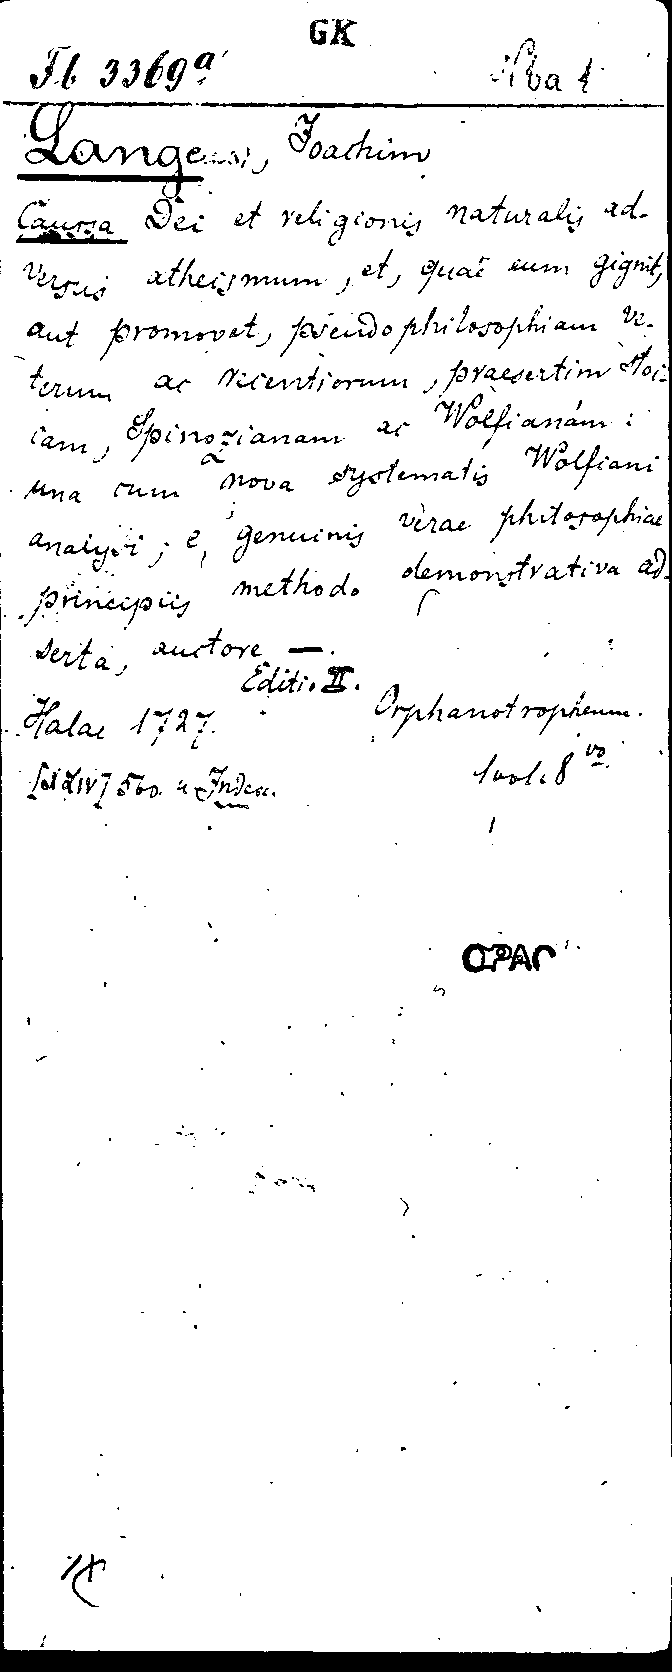 GK
Fb 3369a
Nba 1
Lange, Joachim
Caussa Dei et religionis naturalis ad-
versus atheismum, et, quae eum gignit,
aut promovet, pseudophilosophiam ve-
terum ac recentiorum, praesertim Stoi-
cam, Spinozianam ac Wolfianam:
una cum nova systematis Wolfiani
analysi; e genuinis verae philosophiae
principiis methodo demonstrativa ad-
serta, auctore —.
Editi. II.
Halae 1727. Orphanotropheum.
560 u Index. 1 vol. 8vo
OPAC